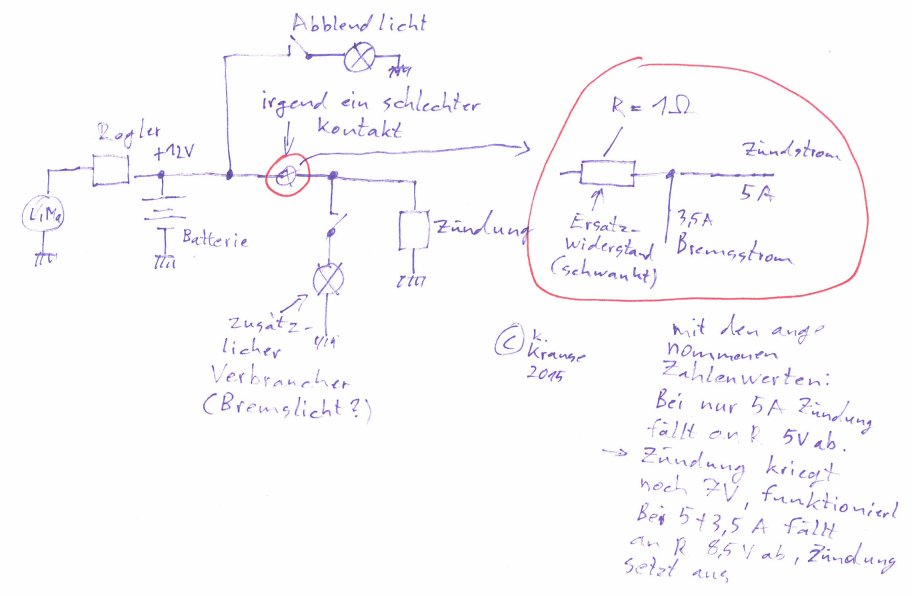 Abblendlicht
irgend ein schlechter
kontakt
Regler
+12V
LiMa
Batterie
Zündung
zusätz-
licher
Verbraucher
(Bremslicht?)
R = 1Ω
Zündstrom
5A
3,5A
Bremsstrom
Ersatz-
widerstand
(schwankt)
© K.
Krause
2015
mit den ange
nommenen
Zahlenwerten:
Bei nur 5A Zündung
fällt an R 5V ab.
→ Zündung kriegt
noch 7V, funktioniert
Bei 5+3,5 A fällt
an R 8,5V ab, Zündung
setzt aus